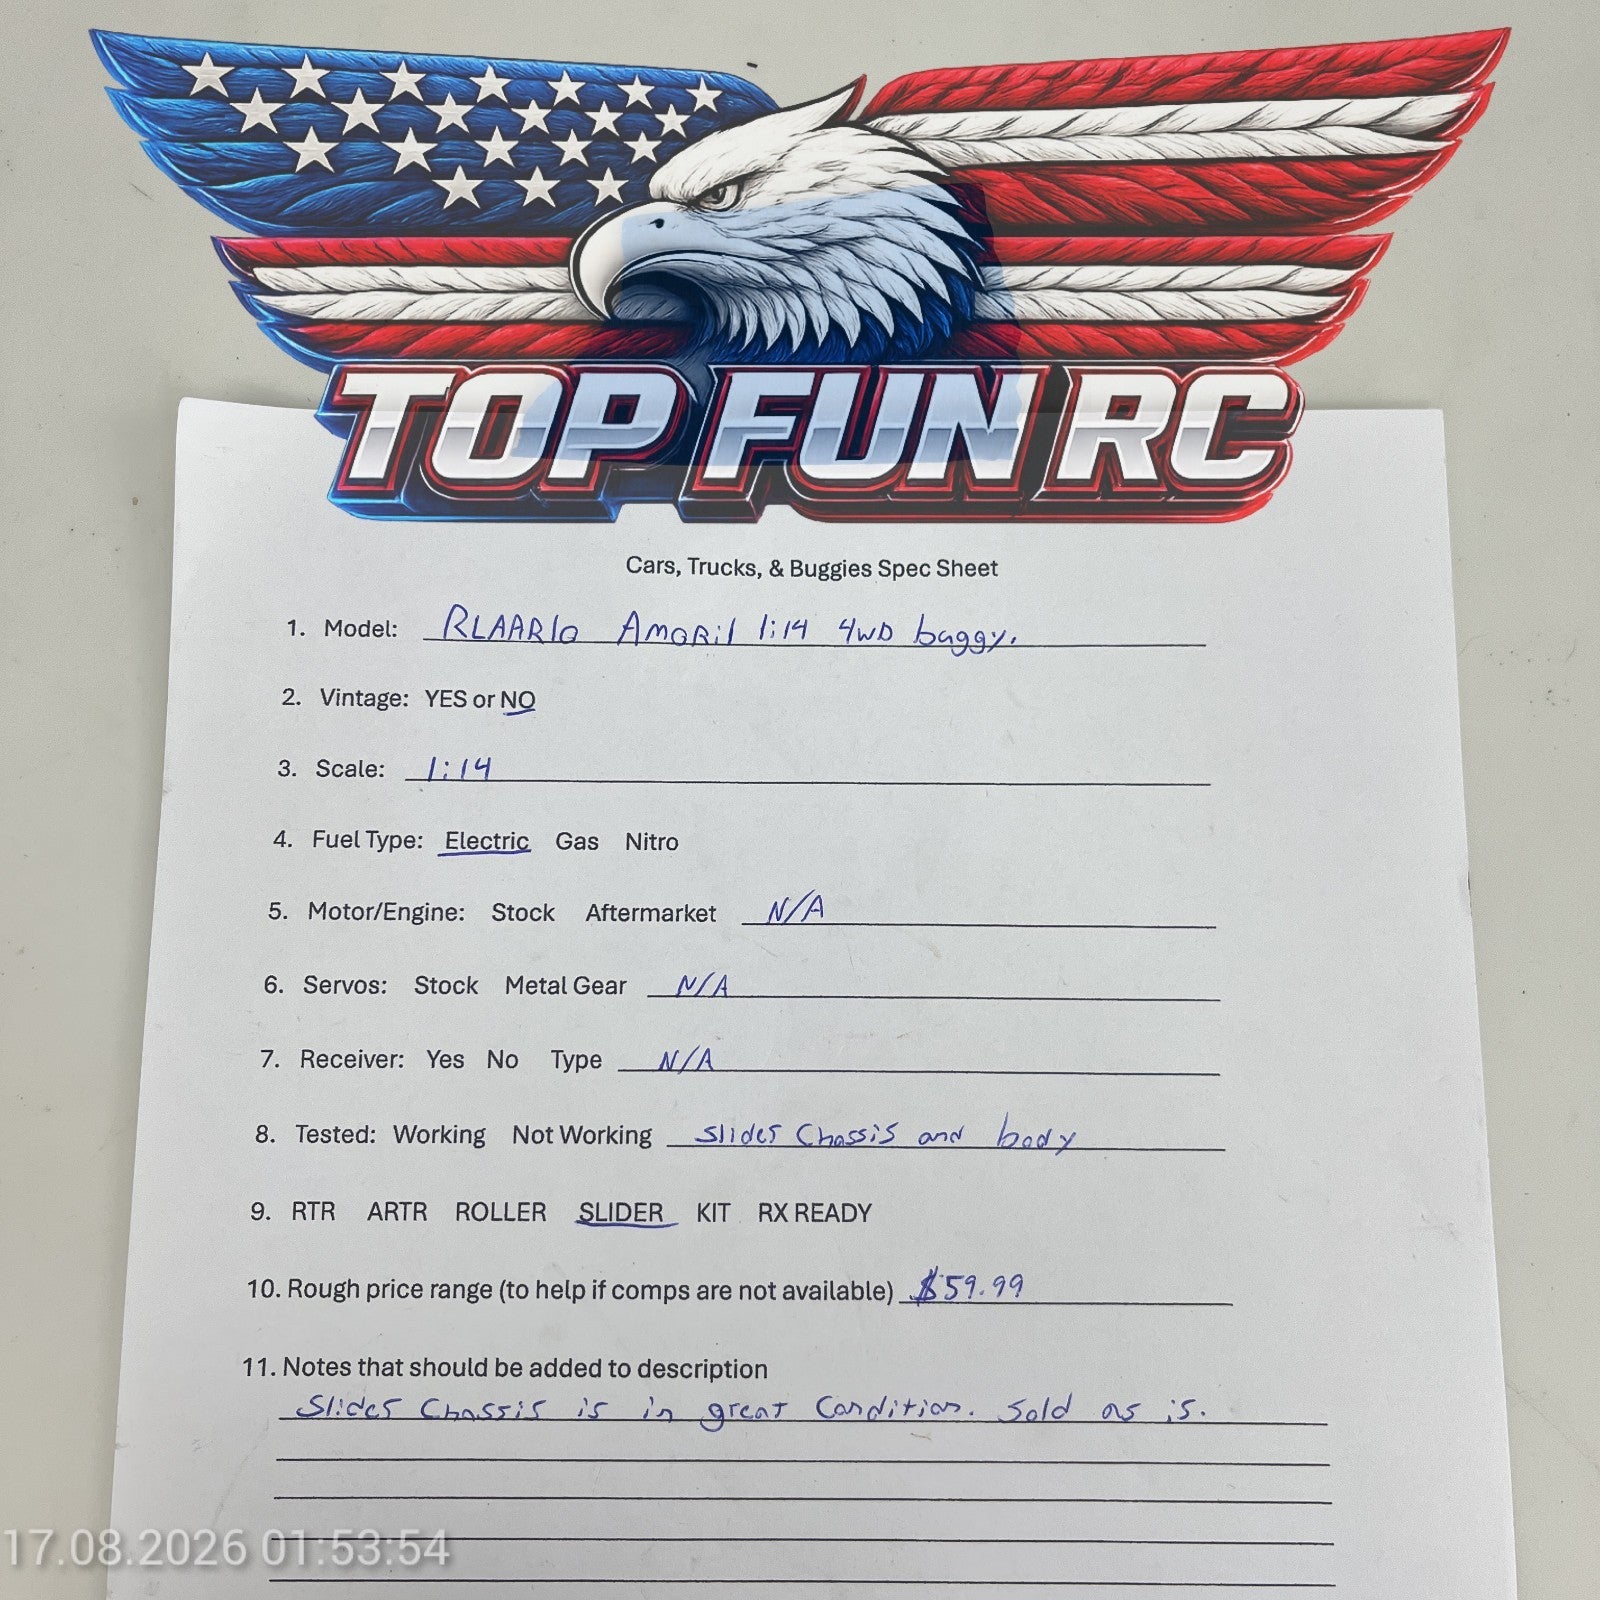 TOP FUN RC
Cars, Trucks, & Buggies Spec Sheet
1. Model: RLAARLO AMORIL 1:14 4WD buggy.
2. Vintage: YES or NO
3. Scale: 1:14
4. Fuel Type: Electric Gas Nitro
5. Motor/Engine: Stock Aftermarket N/A
6. Servos: Stock Metal Gear N/A
7. Receiver: Yes No Type N/A
8. Tested: Working Not Working Slider Chassis and body
9. RTR ARTR ROLLER SLIDER KIT RX READY
10. Rough price range (to help if comps are not available) $59.99
11. Notes that should be added to description
Slider Chassis is in great Condition. Sold as is.
17.08.2026 01:53:54